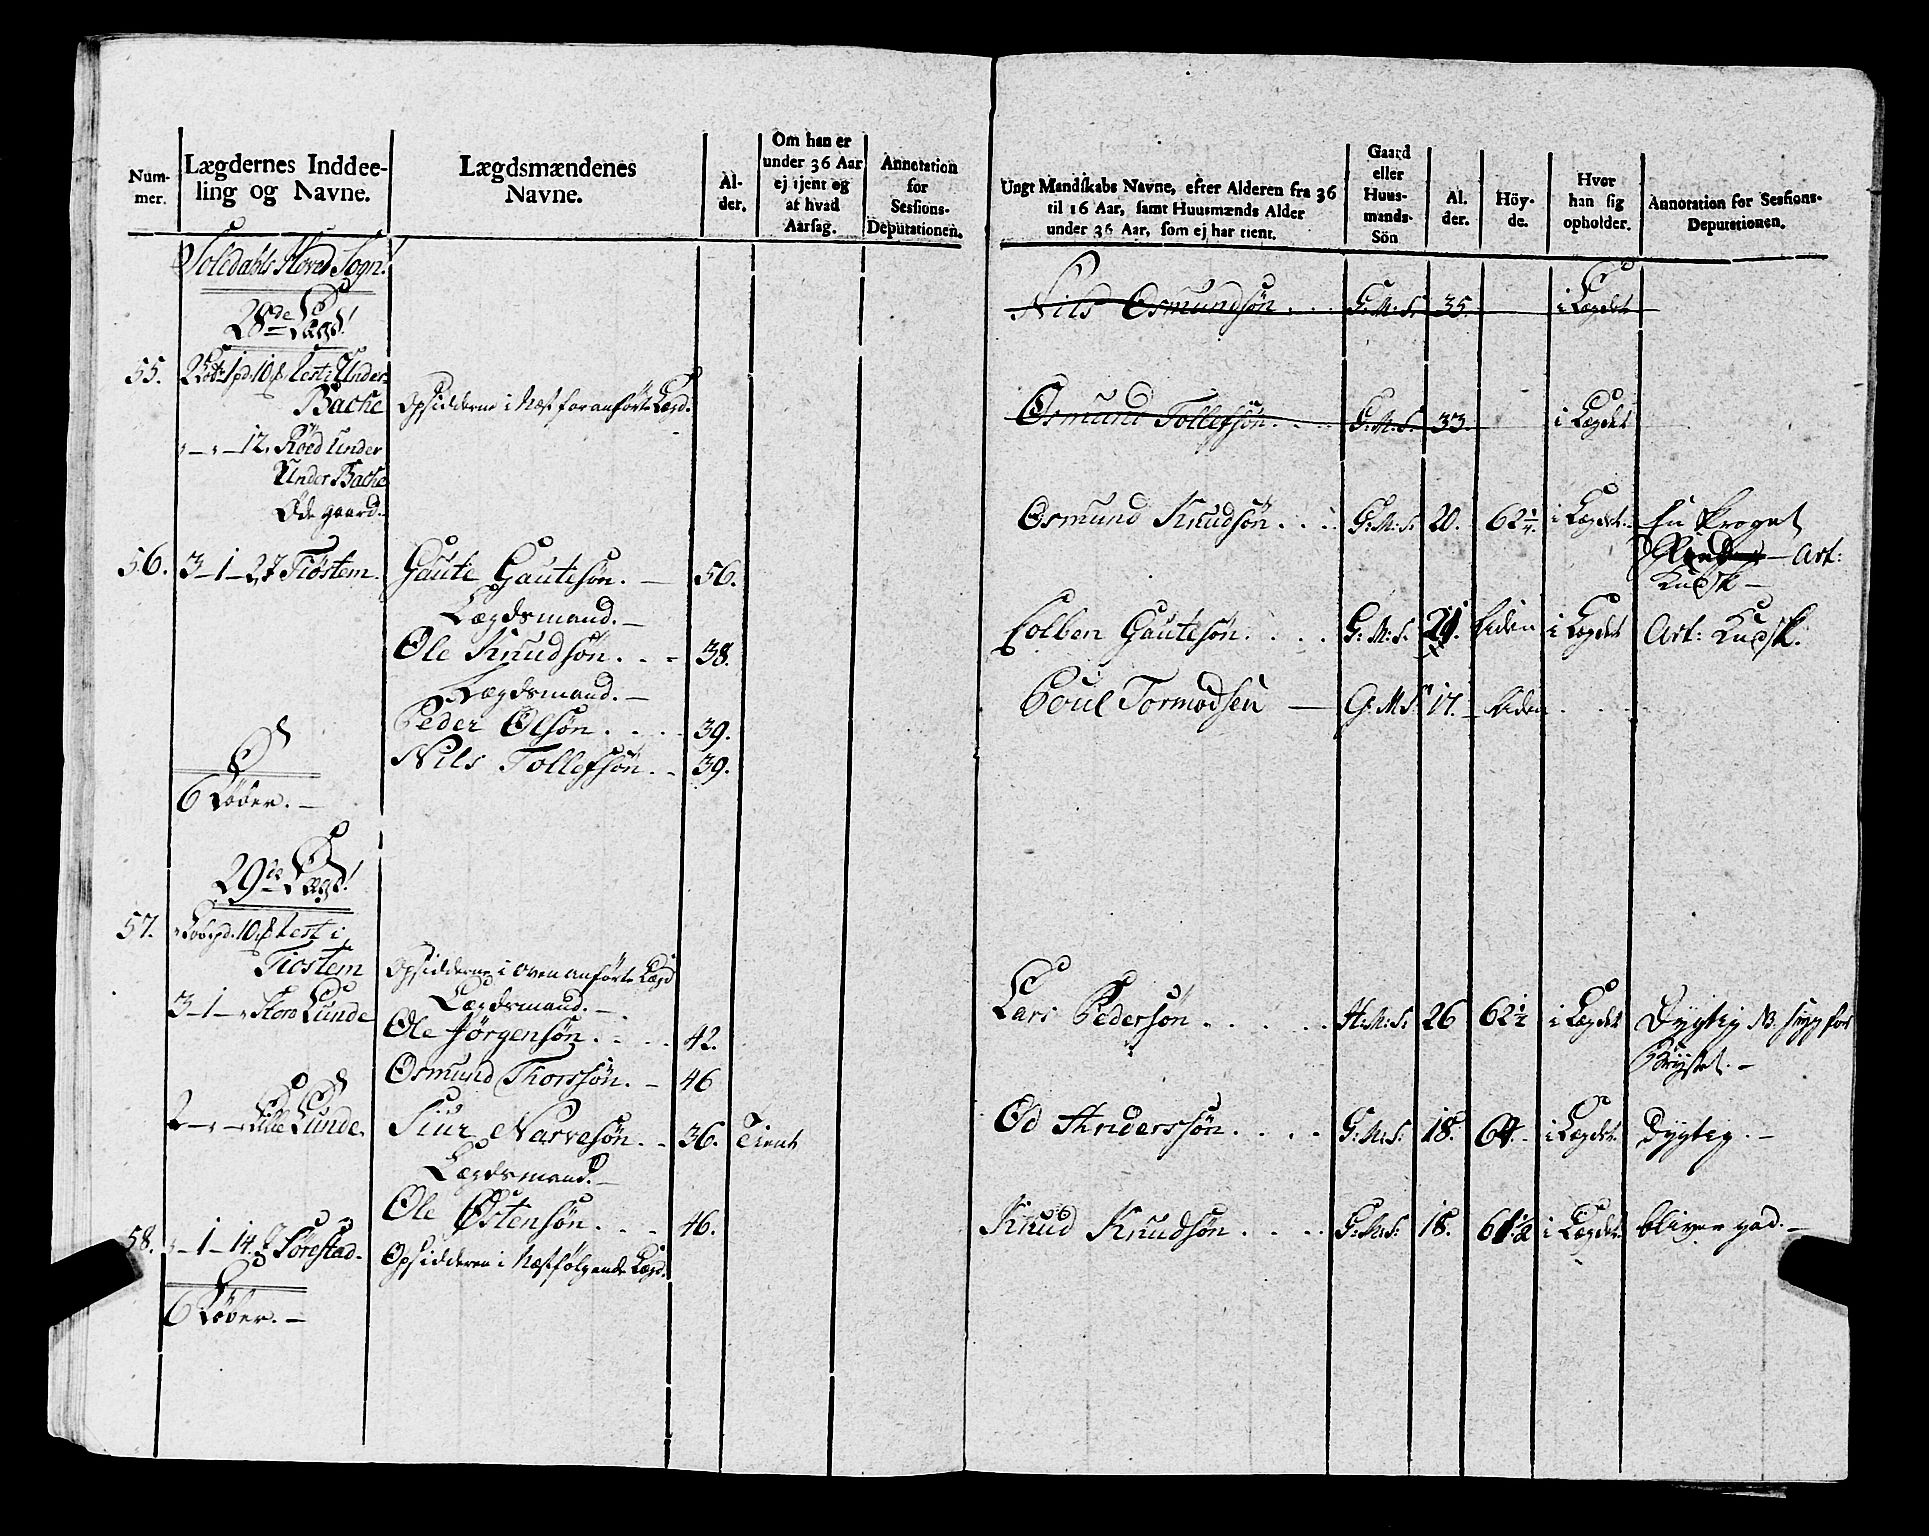 Num-
mer.
Lægdernes Inddee-
ling og Navne.
Lægdsmændenes
Navne.
Al-
der.
Om han er
under 36 Aar
ej tjent og
af hvad
Aarsag.
Annotation
for
Sessions-
Deputationen.
Soledahls Hoved Sogn
28de Lægd
55. 10 Leste Under
Bache Opsidderne i Næst for anførte Lægd.
12. Röed under
Under Bache
Öde gaard
56. 3-1- Tiöstem. Gaute Gautesøn. 56.
Lægdsmand.
Ole Knudsøn. 38.
Lægdsmand.
Peder Olsøn. 39.
Nils Tollefsøn. 39.
6 Löber.
29de Lægd
57. 10 Lest i
Tiostem Opsidderne i oven anförte Lægd
Lægdsmand.
3-1- Store Lunde Ole Jörgensøn. 42.
Osmund Thorssøn. 46
2 Lille Lunde. Siur Narvesøn. 36. Tient
Lægdsmand.
Ole Østensøn. 46.
58. 1-14 Sörestad. Opsidderen i Næstfølgende Lægd.
6 Löber.
Ungt Mandskabs Navne, efter Alderen fra 36
til 16 Aar, samt Huusmænds Alder
under 36 Aar, som ej har tient.
Gaard
eller
Huus-
mands-
Sön
Al.
der.
Höy-
de.
Hvor
han sig
opholder.
Annotation for Sessions-
Deputationen.
Nils Osmundsøn G:M:S: 35. i Lægdet
Osmund Tollefsøn. G:M:S: 33. i Lægdet
Osmund Knudsøn. G:M:S: 20. 62 1/4 i Lægdet. En kroget
Art:
Kudsk
Colben Gautesøn. G:M:S: Liden i Lægdet Art: Kudsk.
Poul Tormodsen G M S 17. Liden
Lars Pedersøn. H:M:S: 26 62 1/2 i Lægdet Dygtig NB svag for
Brystet.
Od Anderssøn. G:M:S: 18. 64. i Lægdet. Dygtig.
Knud Knudsøn. G:M:S: 18. 61 1/2 i Lægdet. bliver god.